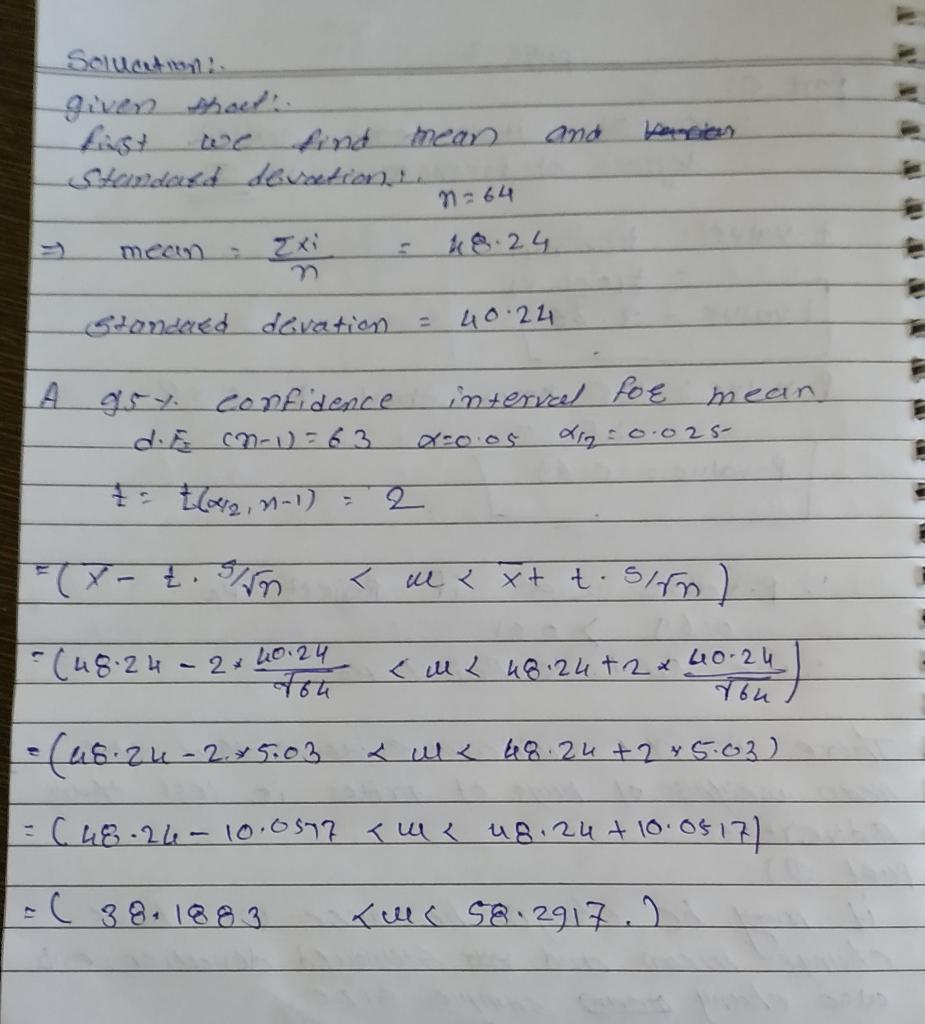 Solucation:.
given that:.
first we find mean and
Standard devation:.
n = 64
⇒ mean = Σxi/n = 48.24
Standard devation = 40.24
A 95%. confidence interval for mean
d.F (n-1) = 63 α=0.05 α/2 = 0.025
t = t(α/2, n-1) = 2
=(x̄ - t. s/√n < μ < x̄ + t. s/√n)
=(48.24 - 2 * 40.24/√64 < μ < 48.24 + 2 * 40.24/√64)
=(48.24 - 2 * 5.03 < μ < 48.24 + 2 * 5.03)
=(48.24 - 10.0517 < μ < 48.24 + 10.0517)
=( 38.1883 < μ < 58.2917.)